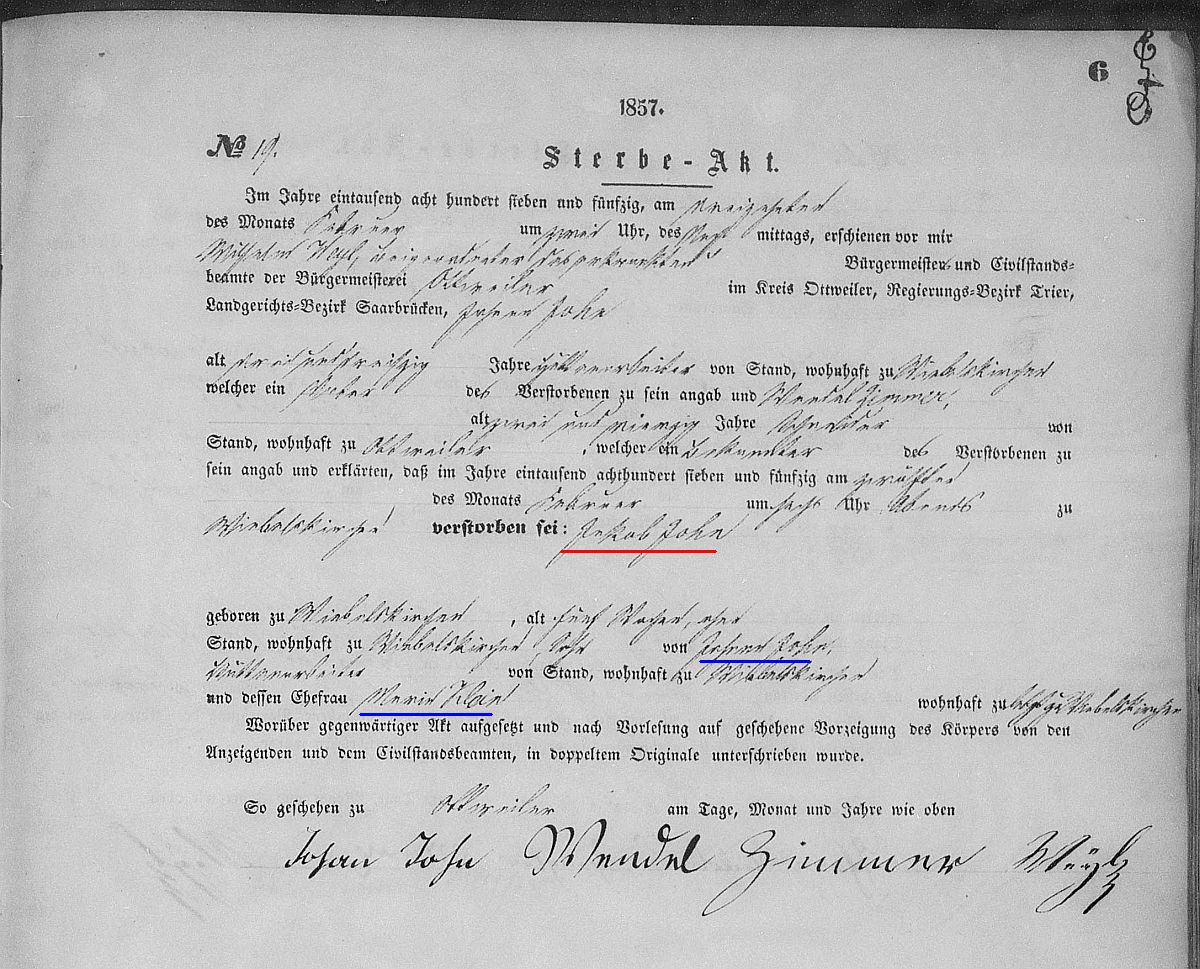 6
1857.
№ 19.
Sterbe-Akt.
Im Jahre eintausend acht hundert sieben und fünfzig, am dreizehnten
des Monats Februar um zwei Uhr, des Nach mittags, erschienen vor mir
Wilhelm Beigeordneter Bürgermeister und Civilstands-
beamte der Bürgermeisterei Ottweiler im Kreis Ottweiler, Regierungs-Bezirk Trier,
Landgerichts-Bezirk Saarbrücken, Johann John
alt drei und dreißzig Jahre Hüttenarbeiter von Stand, wohnhaft zu Wiebelskirchen
welcher ein Vater des Verstorbenen zu sein angab und Wendel Zimmer,
alt zwei und vierzig Jahre Schneider von
Stand, wohnhaft zu Ottweiler, welcher ein Bekannter des Verstorbenen zu
sein angab und erklärten, daß im Jahre eintausend achthundert sieben und fünfzig am zwölften
des Monats Februar um sechs Uhr Abends zu
Wiebelskirchen verstorben sei: Jakob John
geboren zu Wiebelskirchen, alt fünf Wochen, ohne
Stand, wohnhaft zu Wiebelskirchen Sohn von Johann John,
Hüttenarbeiter von Stand, wohnhaft zu Wiebelskirchen
und dessen Ehefrau Maria Klein wohnhaft zu Wiebelskirchen
Worüber gegenwärtiger Akt aufgesetzt und nach Vorlesung auf geschehene Vorzeigung des Körpers von den
Anzeigenden und dem Civilstandsbeamten, in doppeltem Originale unterschrieben wurde.
So geschehen zu Ottweiler am Tage, Monat und Jahre wie oben
Johan John Wendel Zimmer